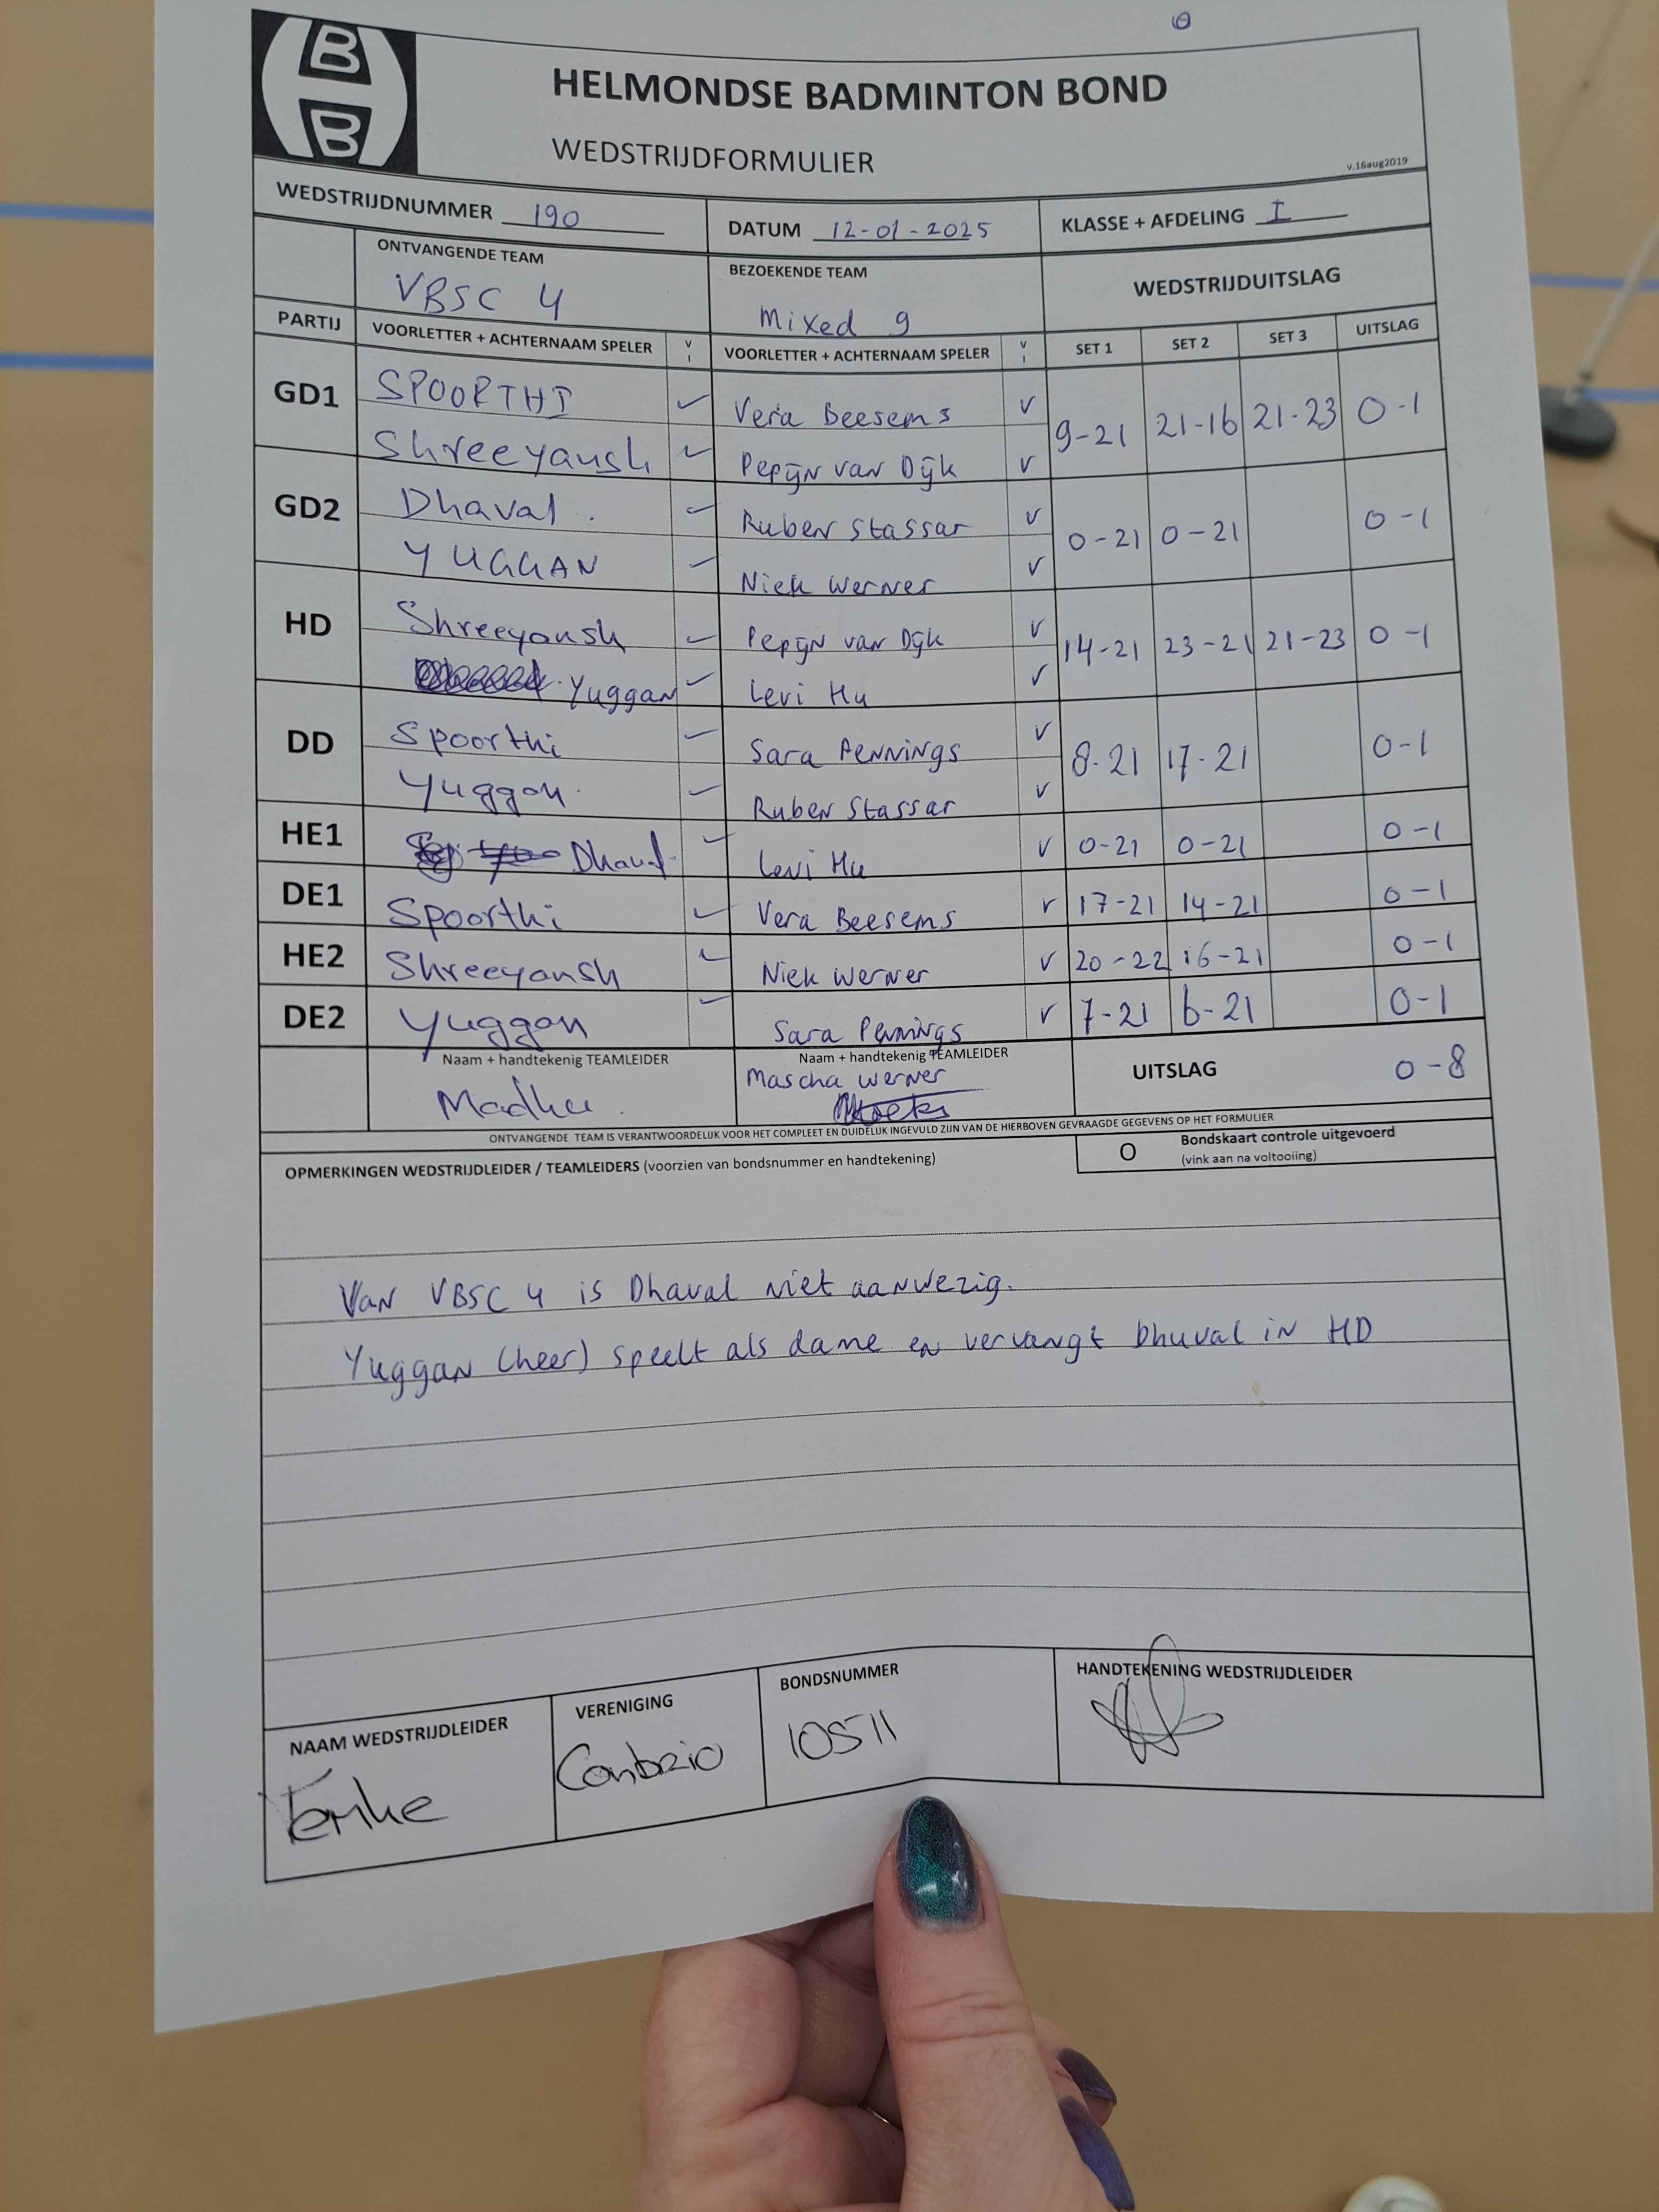 B
B
HELMONDSE BADMINTON BOND
WEDSTRIJDFORMULIER
v.16aug2019
WEDSTRIJDNUMMER 190 DATUM 12-01-2025 KLASSE + AFDELING I
ONTVANGENDE TEAM BEZOEKENDE TEAM WEDSTRIJDUITSLAG
VBSC 4 Mixed 9
PARTIJ VOORLETTER + ACHTERNAAM SPELER V I VOORLETTER + ACHTERNAAM SPELER V I SET 1 SET 2 SET 3 UITSLAG
GD1 SPOORTHI Vera Beesems V 9-21 21-16 21-23 0-1
Shreeyansh Pepijn van Dijk V
GD2 Dhaval. Ruben Stassar V 0-21 0-21 0-1
YUGGAN Niek Werner V
HD Shreeyansh Pepijn van Dijk V 14-21 23-21 21-23 0-1
Yuggan Levi Hu V
DD Spoorthi Sara Pennings V 8-21 17-21 0-1
Yuggan. Ruben Stassar V
HE1 Dhaval Levi Hu V 0-21 0-21 0-1
DE1 Spoorthi Vera Beesems V 17-21 14-21 0-1
HE2 Shreeyansh Niek Werner V 20-22 16-21 0-1
DE2 Yuggan Sara Pennings V 7-21 6-21 0-1
Naam + handtekenig TEAMLEIDER Naam + handtekenig TEAMLEIDER UITSLAG 0-8
Madhu. Mascha Werner
ONTVANGENDE TEAM IS VERANTWOORDELIJK VOOR HET COMPLEET EN DUIDELIJK INGEVULD ZIJN VAN DE HIERBOVEN GEVRAAGDE GEGEVENS OP HET FORMULIER
OPMERKINGEN WEDSTRIJDLEIDER / TEAMLEIDERS (voorzien van bondsnummer en handtekening) O Bondskaart controle uitgevoerd
(vink aan na voltooiing)
Van VBSC 4 is Dhaval niet aanwezig.
Yuggan (heer) speelt als dame en vervangt Dhuval in HD
NAAM WEDSTRIJDLEIDER VERENIGING BONDSNUMMER HANDTEKENING WEDSTRIJDLEIDER
Conbrio 10511